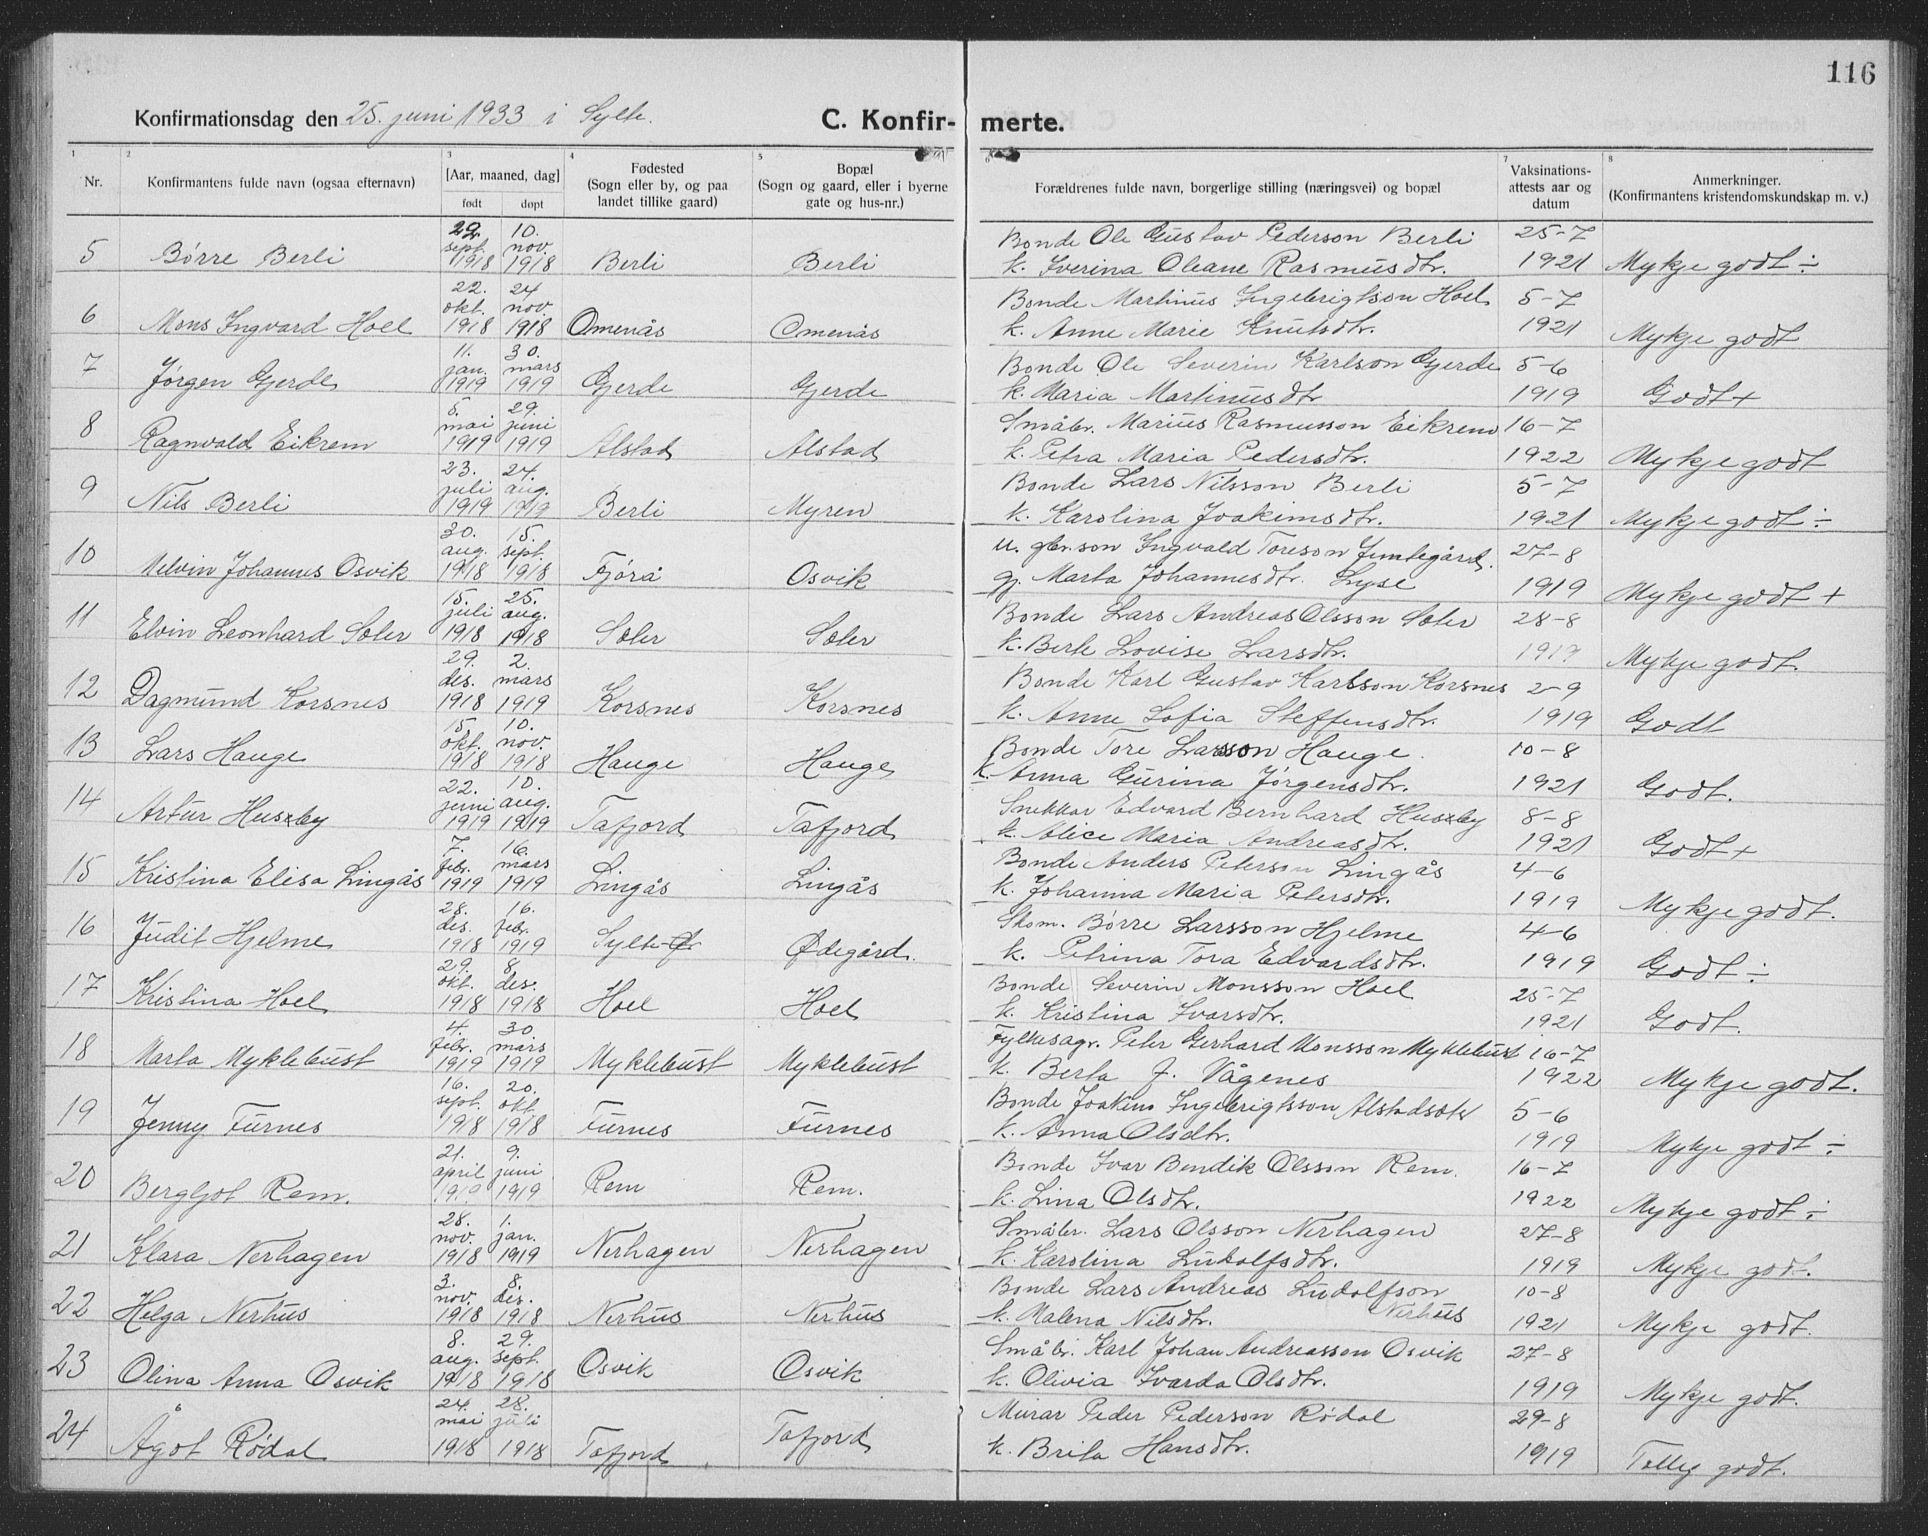 116
Konfirmationsdag den 25. juni 1933 i Sylte.
C. Konfirmerte.
1 2 3 4 5 6 7 8
Nr.
Konfirmantens fulde navn (ogsaa efternavn)
[Aar, maaned, dag]
født døpt
Fødested
(Sogn eller by, og paa
landet tillike gaard)
Bopæl
(Sogn og gaard, eller i byerne
gate og hus-nr.)
Forældrenes fulde navn, borgerlige stilling (næringsvei) og bopæl
Vaksinations-
attests aar og
datum
Anmerkninger.
(Konfirmantens kristendomskundskap m. v.)
29. 10. Bonde Ole Gustav Pederson Berli 25-7
sept. nov
5 Børre Berli 1918 1918 Berli Berli k. Iverina Oleane Rasmusdtr. 1921 Mykje godt ÷
22. 24 Bonde Martinus Ingebrigtson Hoel 5-7
okt. nov.
6 Mons Ingvard Hoel 1918 1918 Omenås Omenås k. Anne Marie Knutsdtr. 1921 Mykje godt
11. 30. Bonde Ole Severin Karlson Gjerde 5-6
jan. mars
7 Jørgen Gjerde 1919 1919 Gjerde Gjerde k. Maria Martinusdtr 1919 Godt +
5. 29. Småbr. Marius Rasmusson Eikrem 16-7
mai juni
8 Ragnvald Eikrem 1919 1919 Alstad Alstad k. Petra Maria Pedersdtr. 1922 Mykje godt
23. 24. Bonde Lars Nilsson Berli 5-7
juli aug.
9 Nils Berli 1919 1919 Berli Myren k. Karolina Joakimsdtr. 1921 Mykje godt ÷
30. 15. u. gbr.son Ingvald Toreson Jemtegård. 27-8
aug. sept.
10 Melvin Johannes Osvik 1918 1918 Fjørå Osvik gj. Marta Johannesdtr. Lyse 1919 Mykje godt +
15. 25. Bonde Lars Andreas Olsson Sæter 28-8
juli aug.
11 Elvin Leonhard Sæter 1918 1918 Sæter Sæter k. Berte Lovise Larsdtr. 1919 Mykje godt.
29. 2. Bonde Karl Gustav Karlsson Korsnes 2-9
des. mars
12 Dagmund Korsnes 1918 1919 Korsnes Korsnes k. Anne Sofia Steffensdtr. 1919 Godt
15. 10. Bonde Tore Larsson Hauge. 10-8
okt. nov.
13 Lars Hauge 1918 1918 Hauge Hauge k. Anna Gurina Jørgensdtr. 1921 Godt.
22. 10. Snekkar Edvard Bernhard Huseby 8-8
juni aug.
14 Artur Huseby 1919 1919 Tafjord Tafjord k. Alice Maria Andreasdtr. 1921 Godt +
7. 16. Bonde Anders Peterson Lingås 4-6
febr. mars
15 Kristina Elisa Lingås 1919 1919 Lingås Lingås k. Johanna Maria Petersdtr. 1919 Mykje godt.
28. 16. Skom. Børre Larsson Hjelme 4-6
des. febr.
16 Judit Hjelme 1918 1919 Sylte Ødegård. k. Petrina Tora Edvardsdtr. 1919 Godt ÷
29. 8. Bonde Severin Monsson Hoel 25-7
okt. des.
17 Kristina Hoel 1918 1918 Hoel Hoel k. Kristina Ivarsdtr. 1921 Godt.
4. 30 Fylkesagr. Peter Gerhard Monsson Myklebust 16-7
febr. mars
18 Marta Myklebust 1919 1919 Myklebust Myklebust k. Berta J. Vågenes 1922 Mykje godt.
16. 20. Bonde Joakim Ingebrigtsson Alstad 5-6
sept. okt.
19 Jenny Furnes 1918 1918 Furnes Furnes k. Anna Olsdtr. 1919 Mykje godt ÷
21. 9. Bonde Ivar Bendik Olsson Rem. 16-7
april juni
20 Bergljot Rem. 1919 1919 Rem Rem. k. Lina Olsdtr. 1922 Mykje godt ÷
28. 1. Småbr. Lars Olsson Nerhagen 27-8
nov. jan.
21 Klara Nerhagen 1918 1919 Nerhagen Nerhagen k. Karolina Ludolfsdtr. 1919 Mykje godt.
3. 8. Bonde Lars Andreas Ludolfson 10-8
nov. des. Nerhus
22 Helga Nerhus 1918 1918 Nerhus Nerhus k. Malena Nilsdtr. 1921 Mykje godt.
8. 29. Småbr. Karl Johan Andreasson Osvik 27-8
aug. sept.
23 Olina Anna Osvik 1918 1918 Osvik Osvik k. Olivia Ivarda Olsdtr. 1919 Mykje godt.
24. 28. Murar Peder Pederson Rødal 29-8
mai juli
24 Ågot Rødal 1918 1918 Tafjord Tafjord k. Brita Hansdtr. 1919 godt.